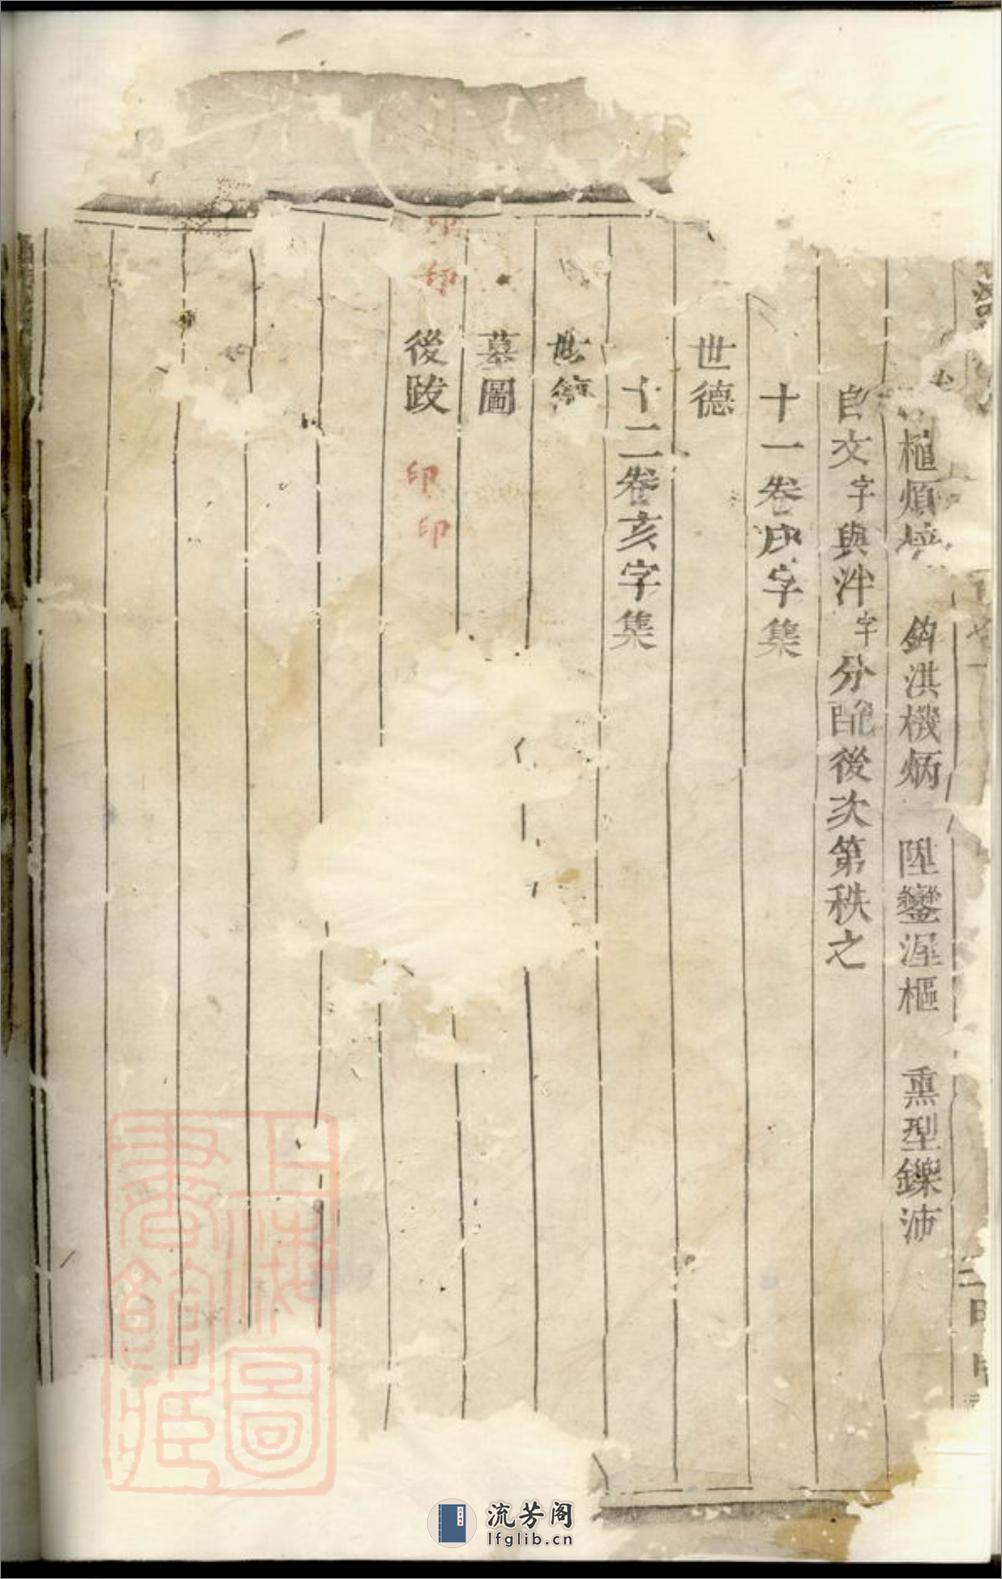 植煩埁 鈎洪機炳 陞鑾渥樞 熏型鑠沛
自文字與泮字分配後次第秩之
十一卷戌字集
世德
十二卷亥字集
世
墓圖
後跋
印
印印
上海圖書館藏
流芳阁
lfglib.cn